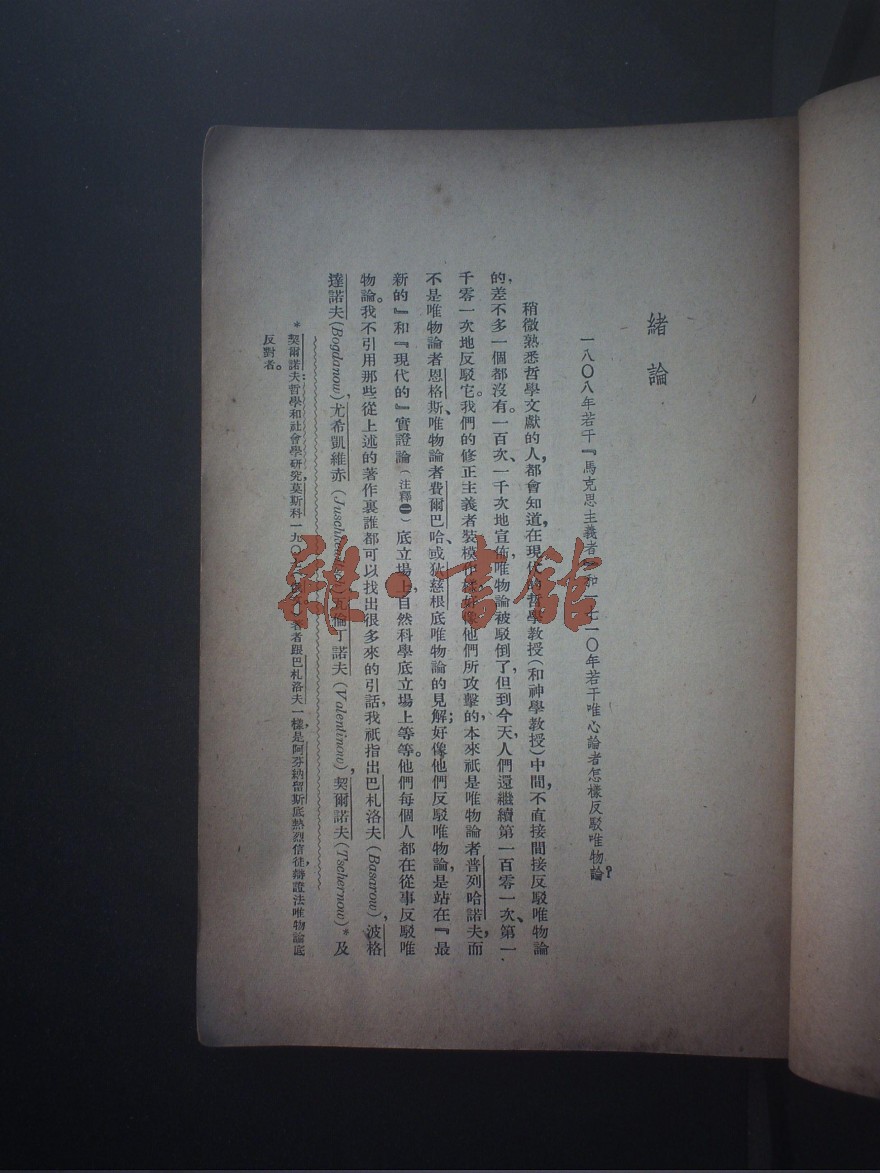 緒論
一八〇八年若干『馬克思主義者』和一七一〇年若干唯心論者怎樣反駁唯物論?
稍微熟悉哲學文獻的人,都會知道,在現代的哲學教授(和神學教授)中間,不直接間接反駁唯物論
的,差不多一個都沒有。一百次、一千次地宣佈唯物論被駁倒了,但到今天,人們還繼續第一百零一次、第一
千零一次地反駁它。我們的修正主義者裝模作樣,好像他們所攻擊的,本來祇是唯物論者普列哈諾夫,而
不是唯物論者恩格斯、唯物論者費爾巴哈、或狄慈根底唯物論的見解;好像他們反駁唯物論,是站在『最
新的』和『現代的』實證論(注釋㊀)底立場上,自然科學底立場上等等。他們每個人都在從事反駁唯
物論。我不引用那些從上述的著作裏誰都可以找出很多來的引話,我祇指出巴札洛夫(Basarow),波格
達諾夫(Bogdanow),尤希凱維赤(Juschkewitsch),瓦倫丁諾夫(Valentinow),契爾諾夫(Tschernow)*及
*契爾諾夫:哲學和社會學研究,莫斯科一九〇八年著者跟巴札洛夫一樣,是阿芬納留斯底熱烈信徒,辯證法唯物論底
反對者。
雜·書館